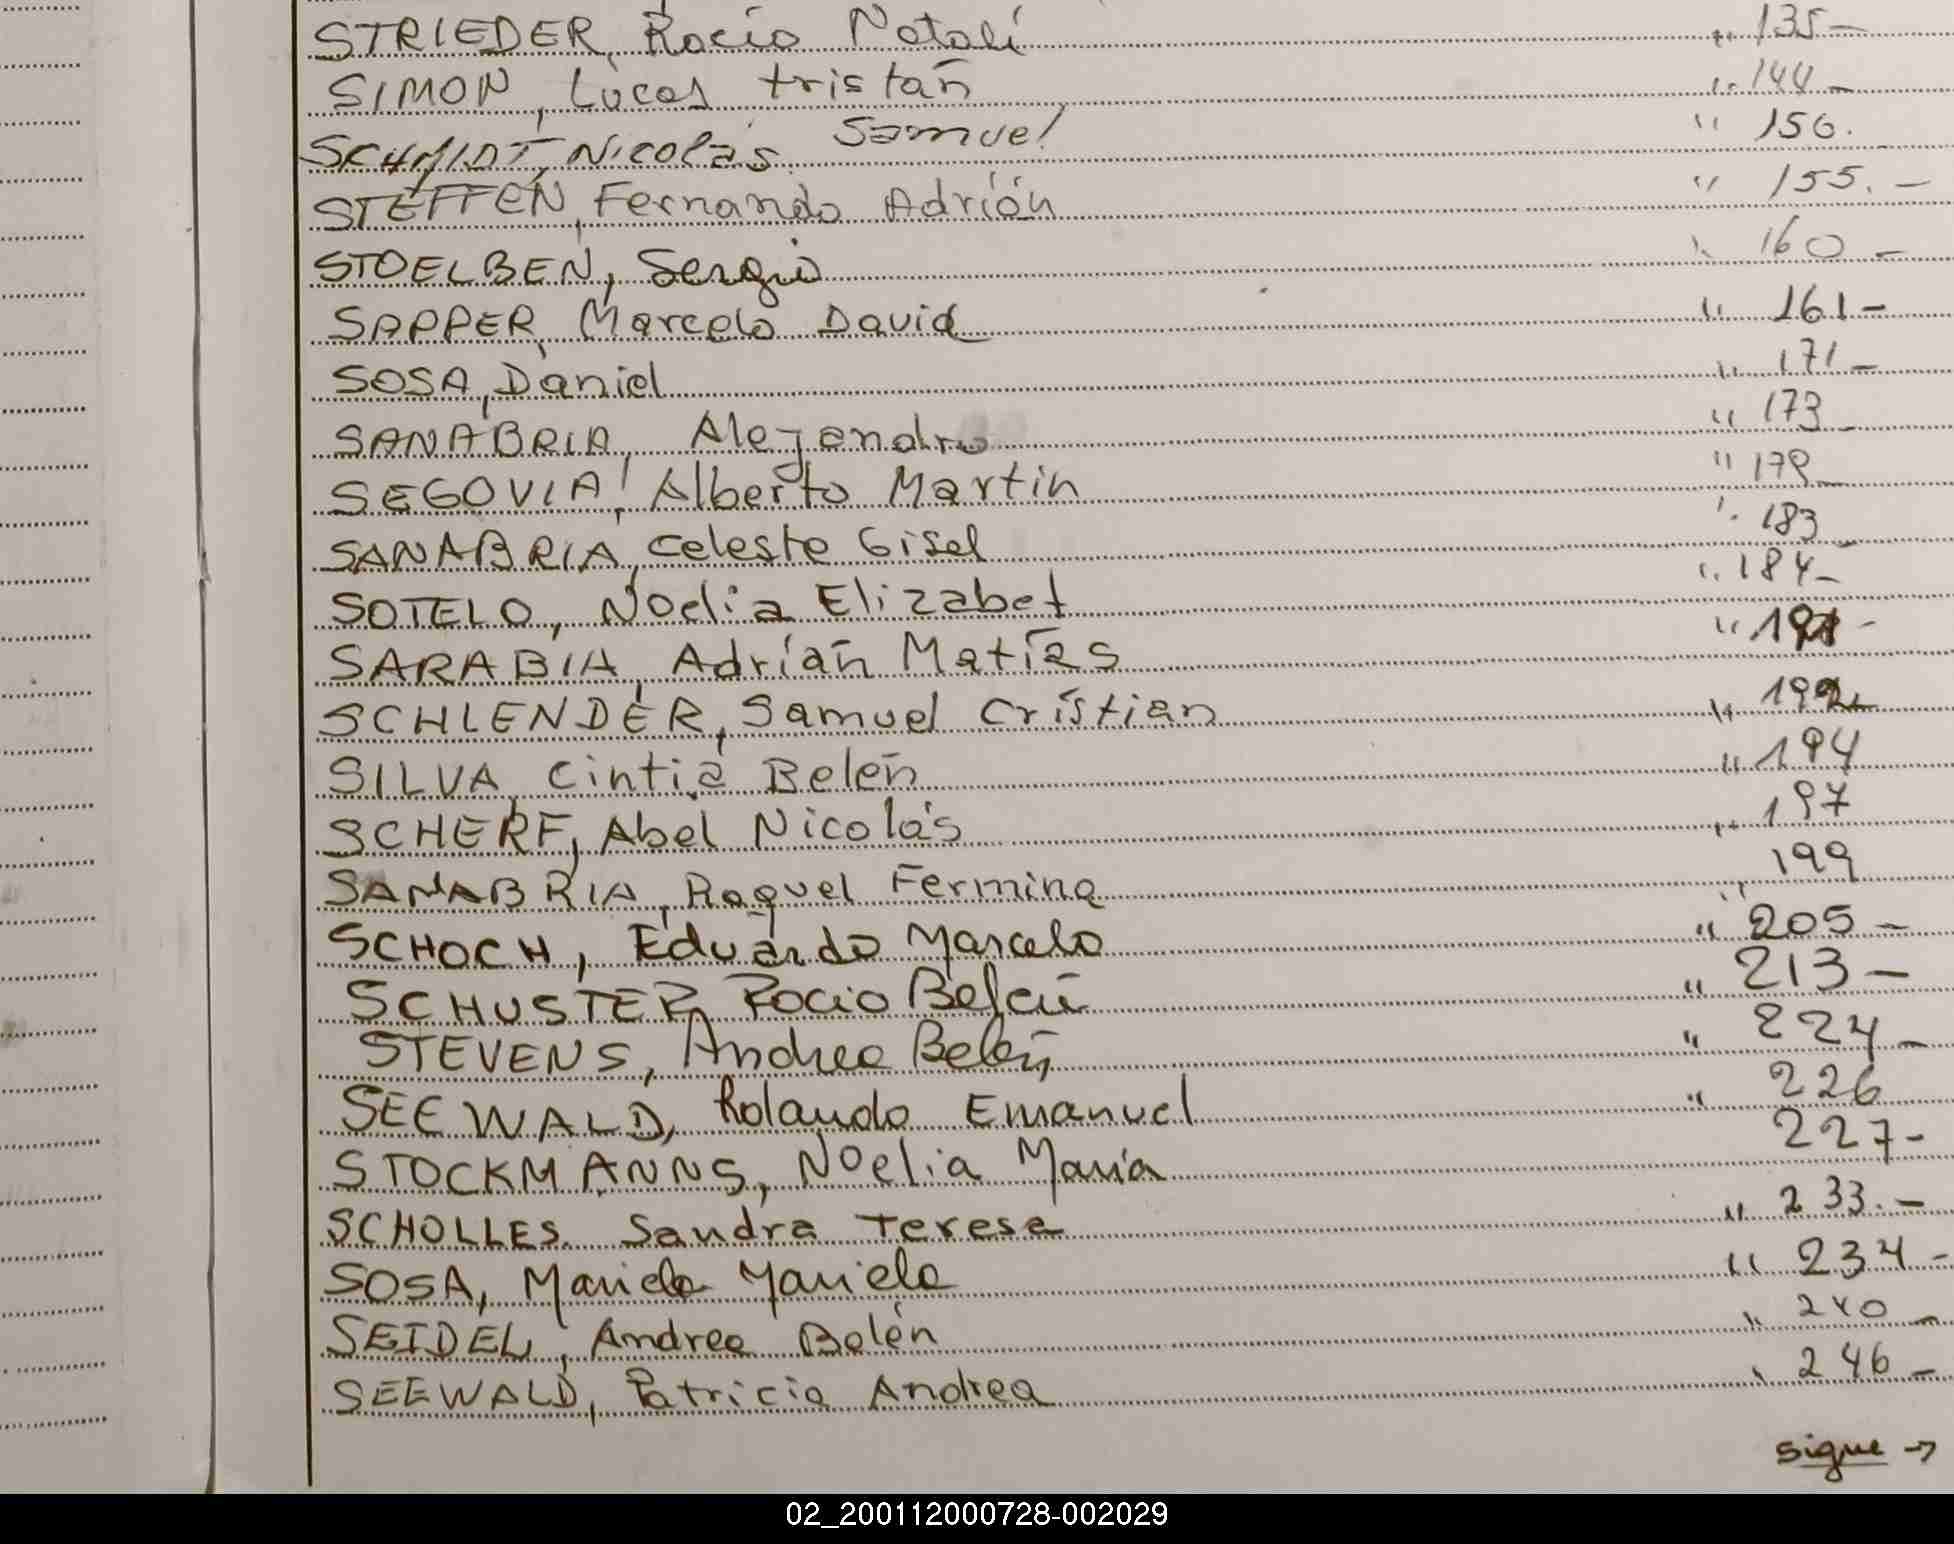 STRIEDER, Rocio Natalí " 135-
SIMON, Lucas tristán " 144-
SCHMIDT, Nicolás Samuel " 150.
STEFFEN, Fernando Adrión " 155.-
STOELBEN, Sergio " 160-
SAPPER, Marcelo David " 161-
SOSA, Daniel " 171-
SANABRIA, Alejandro " 173-
SEGOVIA, Alberto Martin " 179-
SANABRIA, Celeste Gisel " 183-
SOTELO, Noelia Elizabet " 184-
SARABIA, Adrián Matías " 191-
SCHLENDER, Samuel Cristian " 192
SILVA, Cintia Belén " 194
SCHERF, Abel Nicolás " 197
SANABRIA, Raquel Fermina " 199
SCHOCH, Eduardo Marcelo " 205-
SCHUSTER, Rocio Belén " 213-
STEVENS, Andrea Belén " 224-
SEEWALD, Rolando Emanuel " 226
STOCKMANNS, Noelia María 227-
SCHOLLES. Sandra Teresa " 233.-
SOSA, Mariela Mariela " 234-
SEIDEL, Andrea Belén " 240-
SEEWALD, Patricia Andrea " 246-
sigue →
02_200112000728-002029